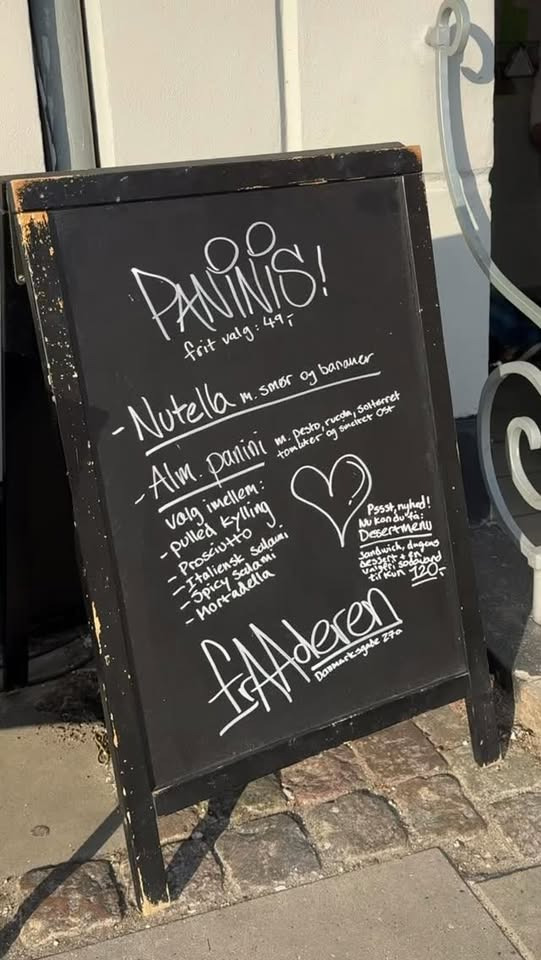 PANINIS!
frit valg: 49,-
- Nutella m. smør og bananer
- Alm. panini m. pesto, rucola, soltørret
tomater og smeltet ost
valg imellem:
- pulled kylling
- Prosciutto
- Italiensk salami
- Spicy salami
- Mortadella
Pssst, nyhed!
Nu kan du få:
Desertmenu
Sandwich, dagens
dessert + en
valgfri sodavand
til kun 120,-
frAAderen
Danmarksgade 27a